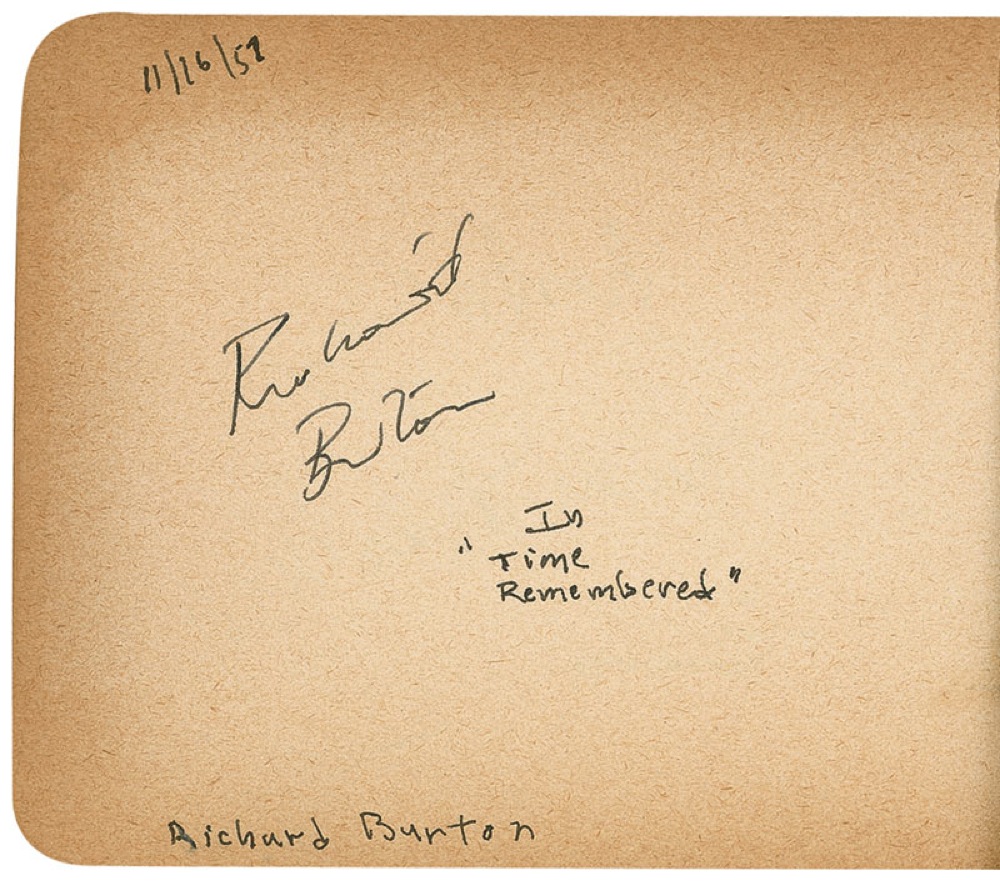 11/26/57
Richard
Burton
In
" Time
Remembered"
Richard Burton